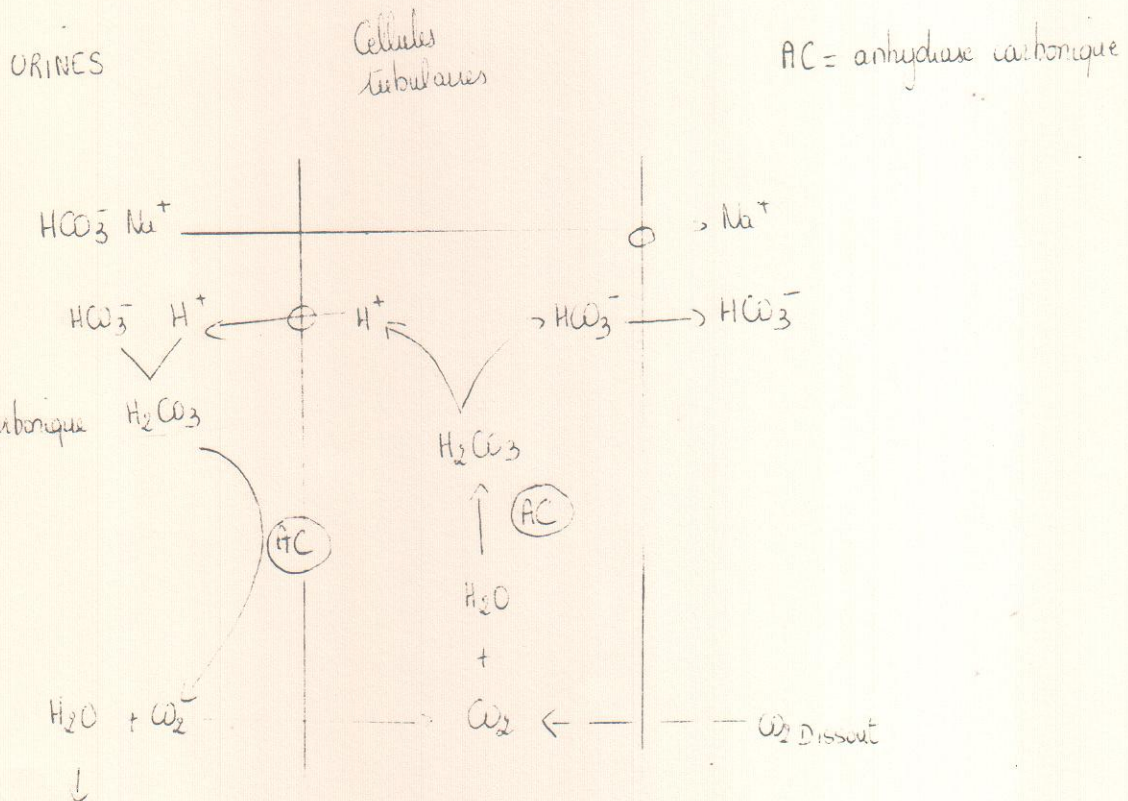 URINES
Cellules
tubulaires
AC = anhydrase carbonique
HCO3- Na+
Na+
HCO3- H+
H+
HCO3-
HCO3-
rbonique H2CO3
H2CO3
AC
AC
H2O
+
H2O + CO2-
CO2
CO2 Dissout